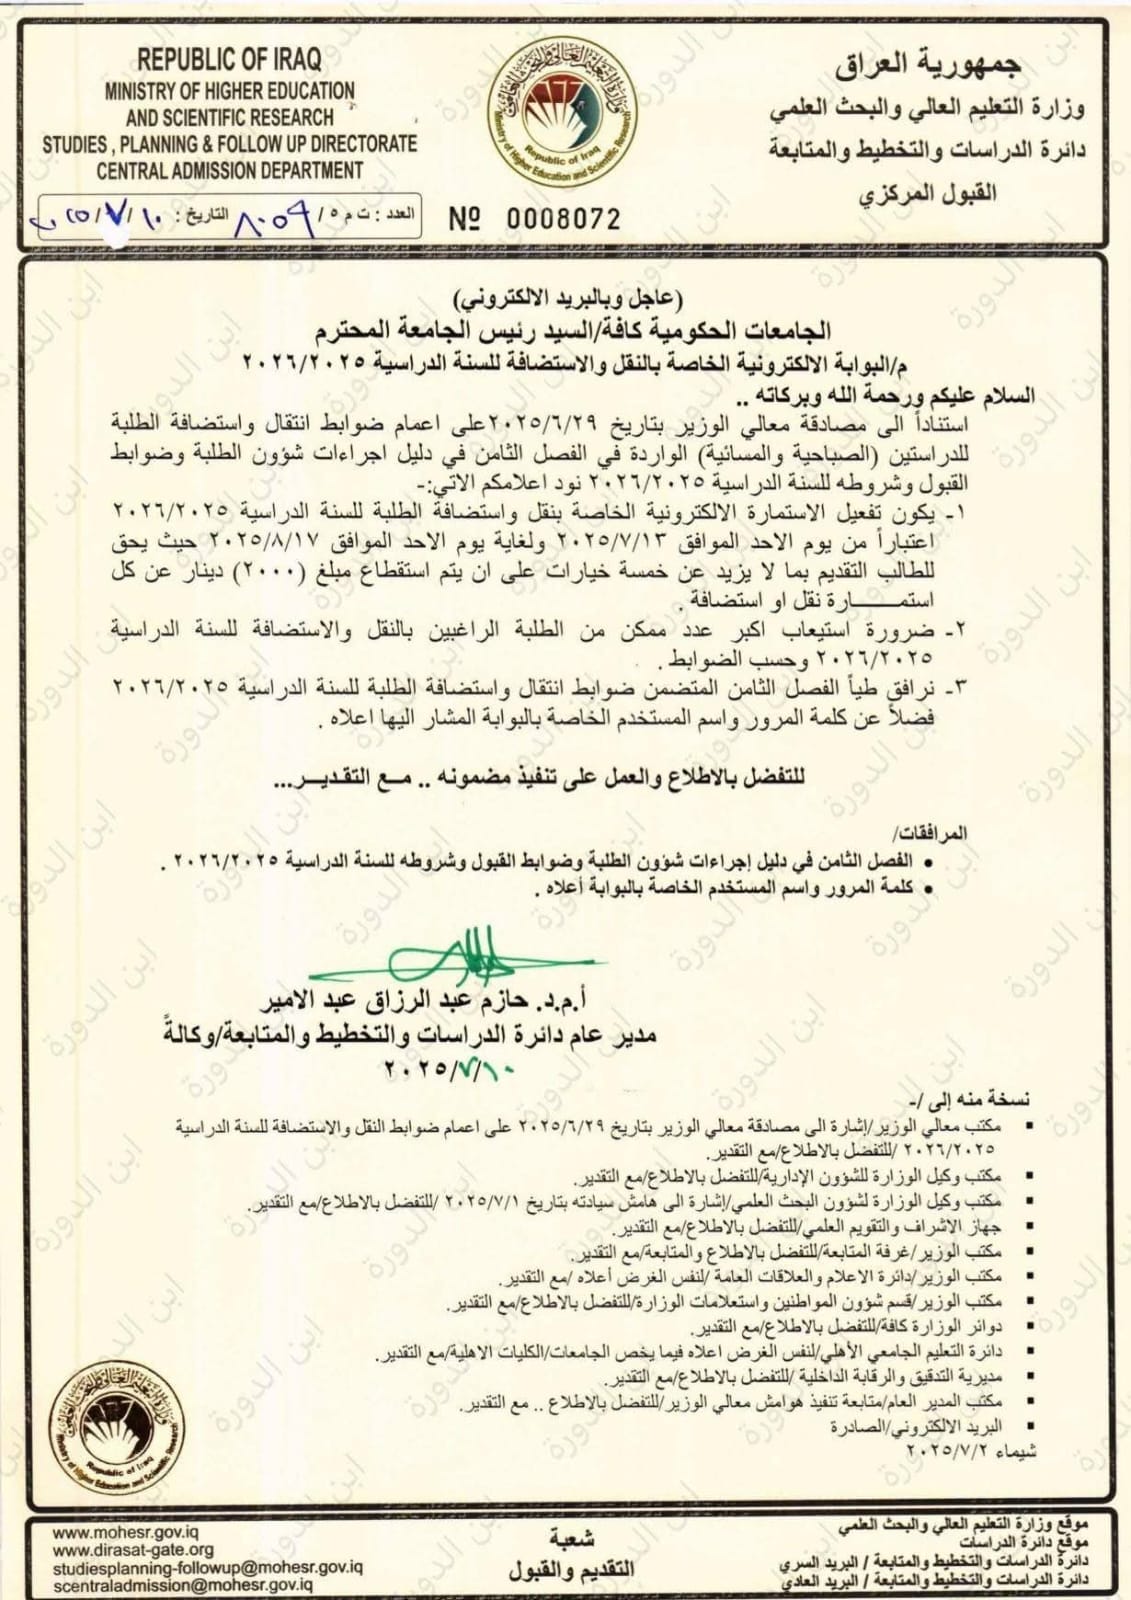 REPUBLIC OF IRAQ
MINISTRY OF HIGHER EDUCATION
AND SCIENTIFIC RESEARCH
STUDIES , PLANNING & FOLLOW UP DIRECTORATE
CENTRAL ADMISSION DEPARTMENT
وزارة التعليم العالي والبحث العلمي
Republic of Iraq
Ministry of Higher Education and Scientific Research
جمهورية العراق
وزارة التعليم العالي والبحث العلمي
دائرة الدراسات والتخطيط والمتابعة
القبول المركزي
العدد : ت م ٥/ ٨٠٥٩ التاريخ : ١٠/ ٧/ ٢٠٢٥
№ 0008072
(عاجل وبالبريد الالكتروني)
الجامعات الحكومية كافة/السيد رئيس الجامعة المحترم
م/البوابة الالكترونية الخاصة بالنقل والاستضافة للسنة الدراسية ٢٠٢٦/٢٠٢٥
السلام عليكم ورحمة الله وبركاته ..
استناداً الى مصادقة معالي الوزير بتاريخ ٢٠٢٥/٦/٢٩على اعمام ضوابط انتقال واستضافة الطلبة
للدراستين (الصباحية والمسائية) الواردة في الفصل الثامن في دليل اجراءات شؤون الطلبة وضوابط
القبول وشروطه للسنة الدراسية ٢٠٢٦/٢٠٢٥ نود اعلامكم الاتي:-
١- يكون تفعيل الاستمارة الالكترونية الخاصة بنقل واستضافة الطلبة للسنة الدراسية ٢٠٢٦/٢٠٢٥
اعتباراً من يوم الاحد الموافق ٢٠٢٥/٧/١٣ ولغاية يوم الاحد الموافق ٢٠٢٥/٨/١٧ حيث يحق
للطالب التقديم بما لا يزيد عن خمسة خيارات على ان يتم استقطاع مبلغ (٢٠٠٠) دينار عن كل
استمــــــارة نقل او استضافة .
٢- ضرورة استيعاب اكبر عدد ممكن من الطلبة الراغبين بالنقل والاستضافة للسنة الدراسية
٢٠٢٦/٢٠٢٥ وحسب الضوابط .
٣- نرافق طياً الفصل الثامن المتضمن ضوابط انتقال واستضافة الطلبة للسنة الدراسية ٢٠٢٦/٢٠٢٥
فضلاً عن كلمة المرور واسم المستخدم الخاصة بالبوابة المشار اليها اعلاه .
للتفضل بالاطلاع والعمل على تنفيذ مضمونه .. مـع التقديـــر...
المرافقات/
• الفصل الثامن في دليل إجراءات شؤون الطلبة وضوابط القبول وشروطه للسنة الدراسية ٢٠٢٦/٢٠٢٥ .
• كلمة المرور واسم المستخدم الخاصة بالبوابة أعلاه .
أ.م.د. حازم عبد الرزاق عبد الامير
مدير عام دائرة الدراسات والتخطيط والمتابعة/وكالةً
٢٠٢٥/٧/١٠
نسخة منه إلى /-
▪ مكتب معالي الوزير/إشارة الى مصادقة معالي الوزير بتاريخ ٢٠٢٥/٦/٢٩ على اعمام ضوابط النقل والاستضافة للسنة الدراسية
٢٠٢٦/٢٠٢٥ /للتفضل بالاطلاع/مع التقدير.
▪ مكتب وكيل الوزارة للشؤون الإدارية/للتفضل بالاطلاع/مع التقدير.
▪ مكتب وكيل الوزارة لشؤون البحث العلمي/إشارة الى هامش سيادته بتاريخ ٢٠٢٥/٧/١ /للتفضل بالاطلاع/مع التقدير.
▪ جهاز الاشراف والتقويم العلمي/للتفضل بالاطلاع/مع التقدير.
▪ مكتب الوزير/غرفة المتابعة/للتفضل بالاطلاع والمتابعة/مع التقدير.
▪ مكتب الوزير/دائرة الاعلام والعلاقات العامة /لنفس الغرض أعلاه /مع التقدير.
▪ مكتب الوزير/قسم شؤون المواطنين واستعلامات الوزارة/للتفضل بالاطلاع/مع التقدير.
▪ دوائر الوزارة كافة/للتفضل بالاطلاع/مع التقدير.
▪ دائرة التعليم الجامعي الأهلي/لنفس الغرض اعلاه فيما يخص الجامعات/الكليات الاهلية/مع التقدير.
▪ مديرية التدقيق والرقابة الداخلية /للتفضل بالاطلاع/مع التقدير.
▪ مكتب المدير العام/متابعة تنفيذ هوامش معالي الوزير/للتفضل بالاطلاع .. مع التقدير.
▪ البريد الالكتروني/الصادرة
شيماء ٢٠٢٥/٧/٢
Republic of Iraq
Ministry of Higher Education and Scientific Research
موقع وزارة التعليم العالي والبحث العلمي www.mohesr.gov.iq
موقع دائرة الدراسات www.dirasat-gate.org
دائرة الدراسات والتخطيط والمتابعة / البريد السري studiesplanning-followup@mohesr.gov.iq
دائرة الدراسات والتخطيط والمتابعة / البريد العادي scentraladmission@mohesr.gov.iq
شعبة
التقديم والقبول
ابن الدورة